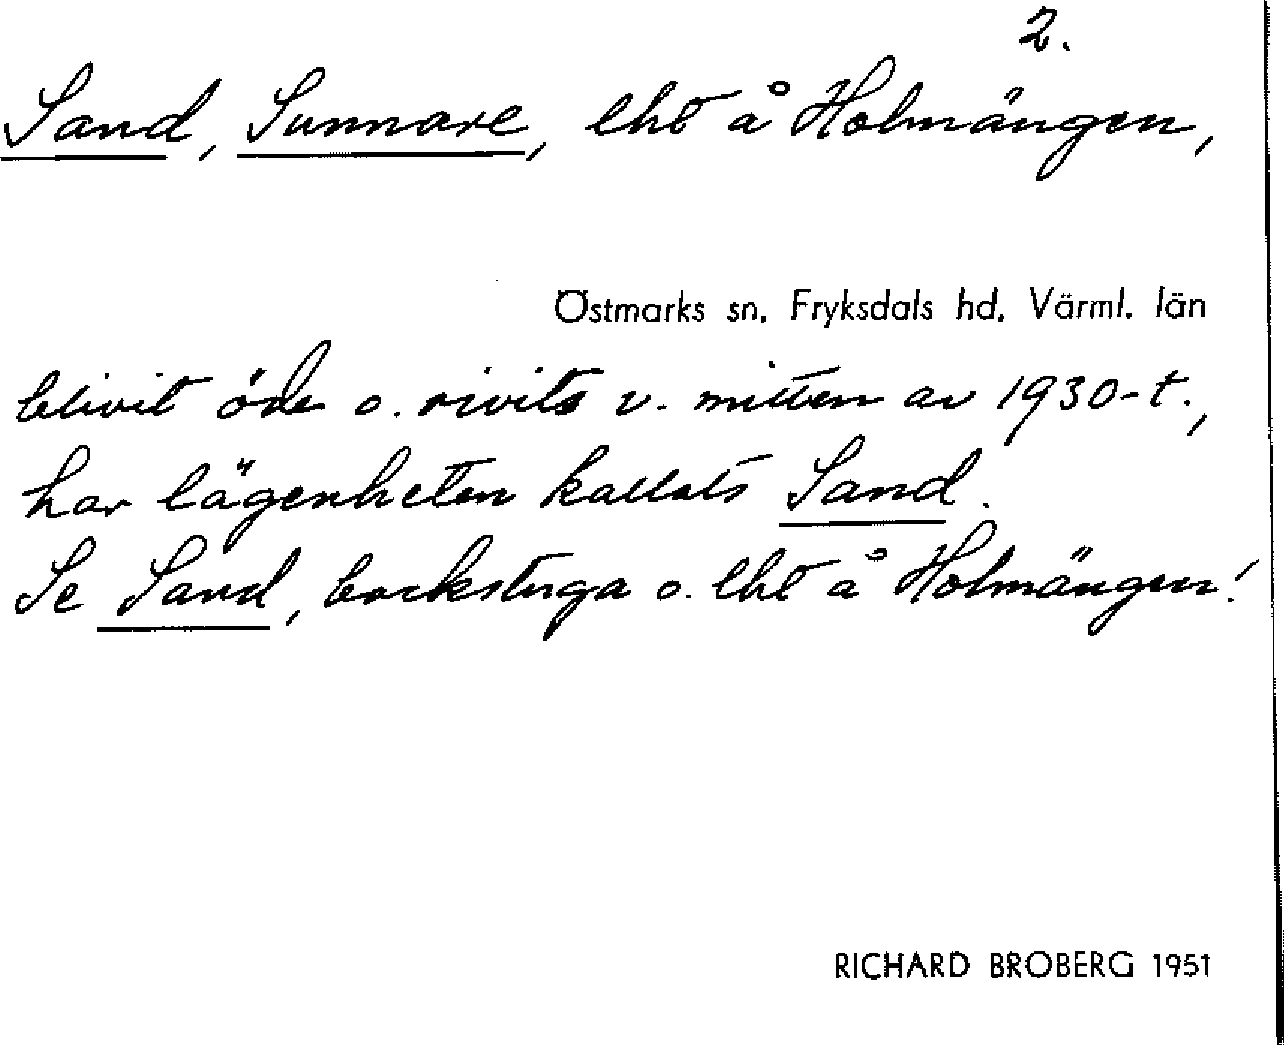 2.
Sand, Sunnare, lht å Holmängen,
Östmarks sn. Fryksdals hd. Värml. län
blivit öde o. rivits v. mitten av 1930-t.,
har lägenheten kallats Sand.
Se Sand, backstuga o. lht å Holmängen!
RICHARD BROBERG 1951